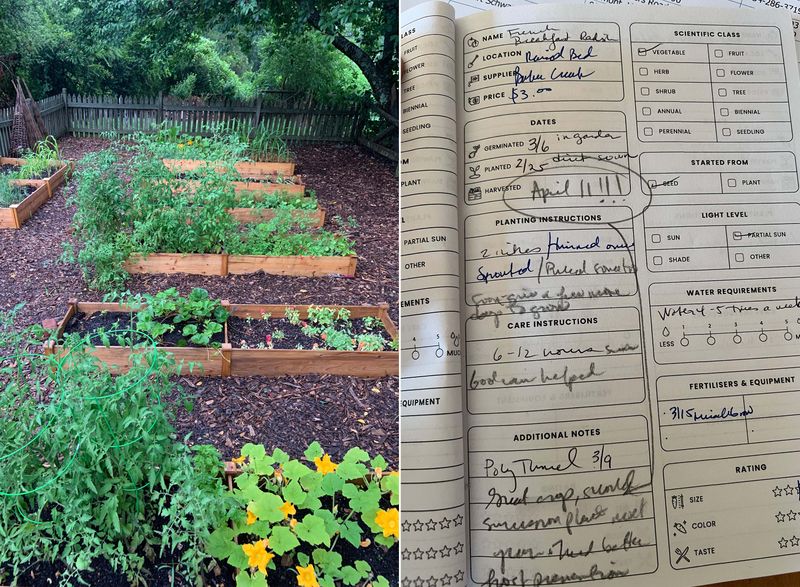 t Schwa
4-286-3719
LASS
FRUIT
LOWER
TREE
BIENNIAL
SEEDLING
OM
PLANT
PARTIAL SUN
OTHER
EMENTS
4 5
MUC
QUIPMENT
NAME French
Breakfast Radish
LOCATION Raised Bed
SUPPLIER Baker Creek
PRICE $3.00
DATES
GERMINATED 3/6 in garden
PLANTED 2/25 direct sown
HARVESTED April 11!!!
PLANTING INSTRUCTIONS
2 inches / thinned once
Sprouted /
give a few more
days to grow
CARE INSTRUCTIONS
6-12 hours sun
helped
ADDITIONAL NOTES
Poly Tunnel 3/9
Great crop, should
succession plant next
year. Need better
frost prevention
SCIENTIFIC CLASS
VEGETABLE FRUIT
HERB FLOWER
SHRUB TREE
ANNUAL BIENNIAL
PERENNIAL SEEDLING
STARTED FROM
SEED PLANT
LIGHT LEVEL
SUN PARTIAL SUN
SHADE OTHER
WATER REQUIREMENTS
Water 4-5 times a week
1 2 3 4 5
LESS MUC
FERTILISERS & EQUIPMENT
3/15
RATING
SIZE
COLOR
TASTE